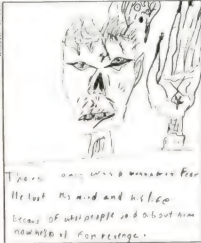 There once was a man Fear
He lost his mind and his life
becaus of what people said about him
now he is out For revenge.